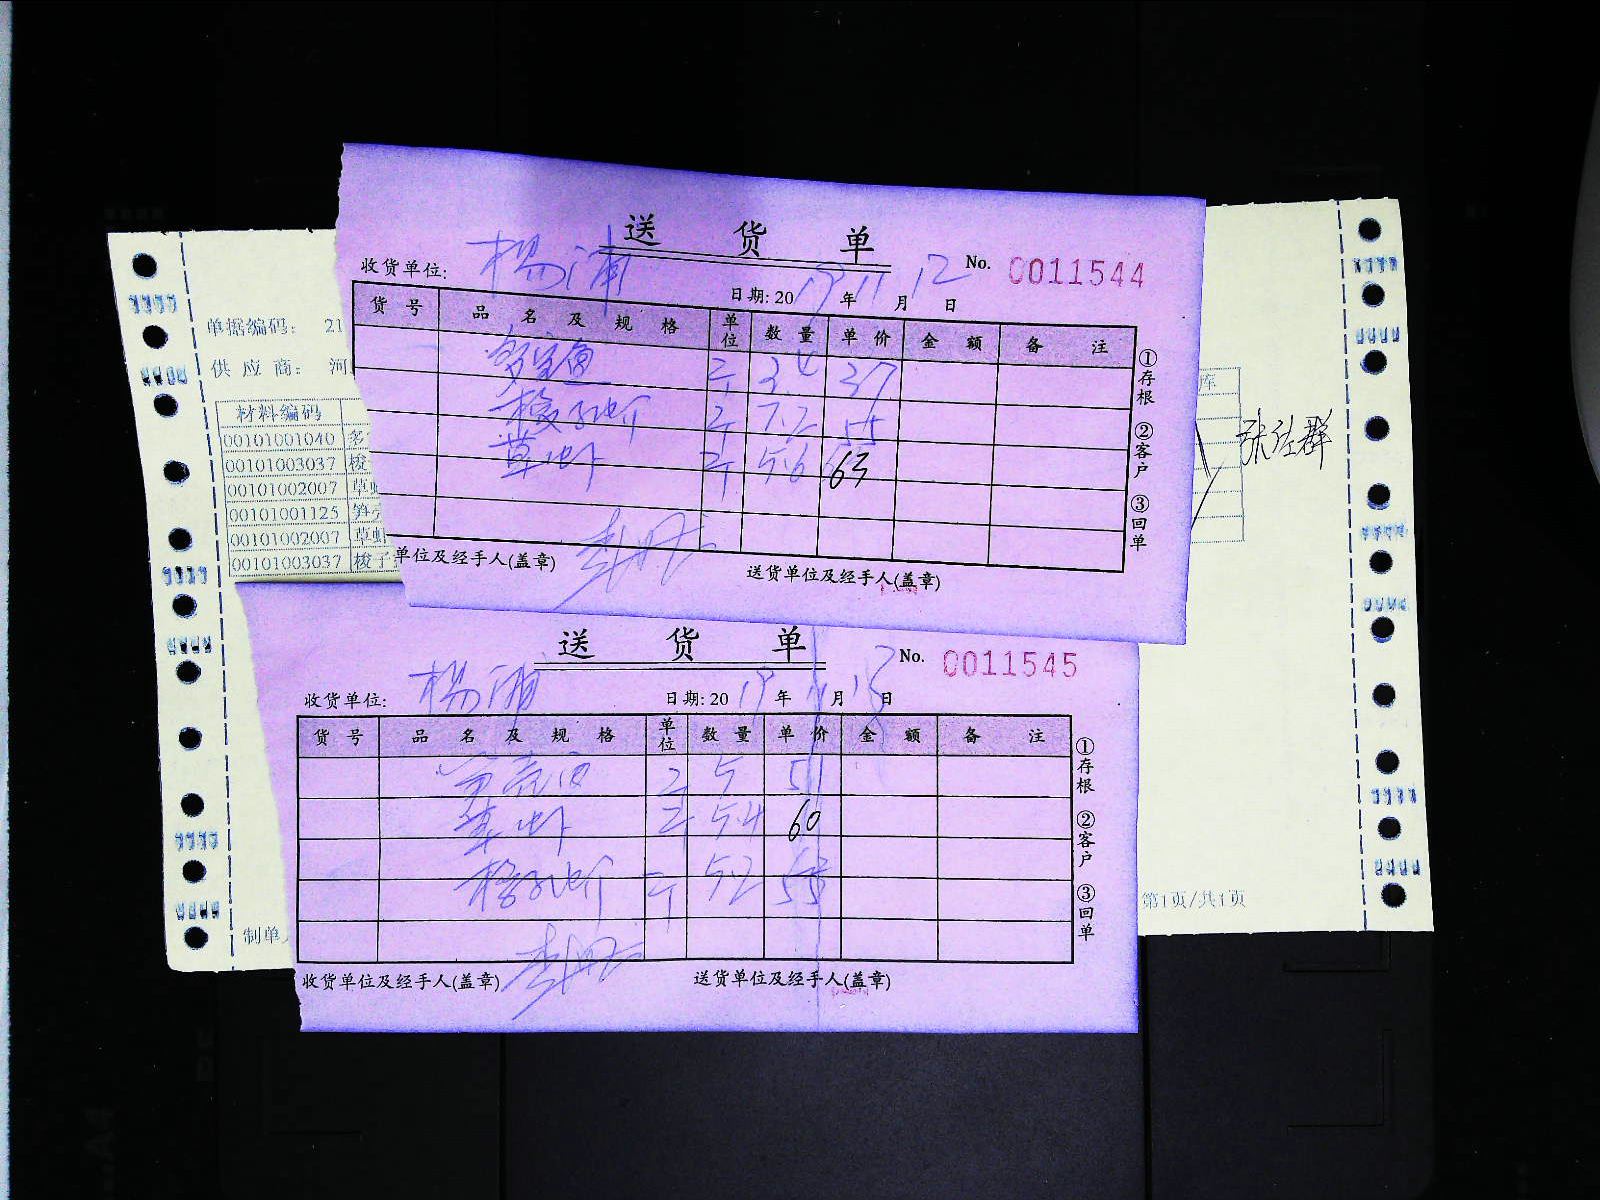 送 货 单
收货单位: 杨浦
No. 0011544
日期: 2019年11月12日
货 号 品 名 及 规 格 单位 数 量 单 价 金 额 备 注
多宝鱼 斤 3.4 37
梭子蟹 斤 7.2 55
草虾 斤 5.6 63
①存根 ②客户 ③回单
单位及经手人(盖章)
送货单位及经手人(盖章)
送 货 单
收货单位: 杨浦
No. 0011545
日期: 2019年11月13日
货 号 品 名 及 规 格 单位 数 量 单 价 金 额 备 注
笋壳鱼 斤 5 51
草虾 斤 5.4 60
梭子蟹 斤 5.2 55
①存根 ②客户 ③回单
收货单位及经手人(盖章)
送货单位及经手人(盖章)
单据编码: 21
供 应 商: 河
材料编码
00101001040 多
00101003037 梭
00101002007 草虾
00101001125 笋壳
00101002007 草虾
00101003037 梭子
库
制单人
第1页/共1页